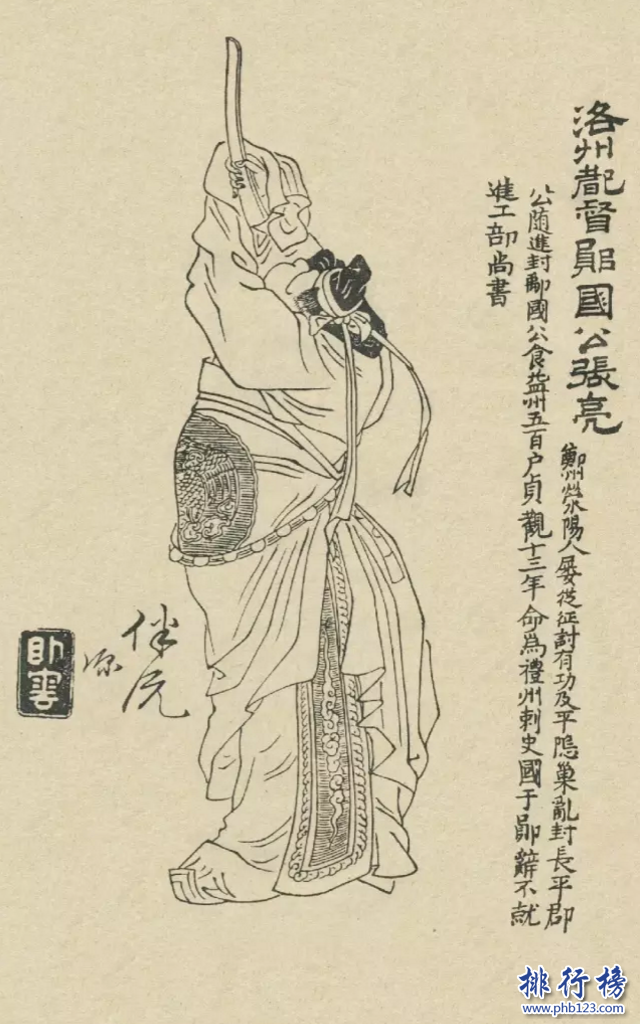 洛州都督鄖國公張亮
鄭州滎陽人屢從征討有功及平隐巢亂封長平郡
公隨進封鄅國公食益州五百户貞觀十三年命為禮州刺史國于鄖辭不就
進工部尚書
伴阮
源
排行榜
www.phb123.com